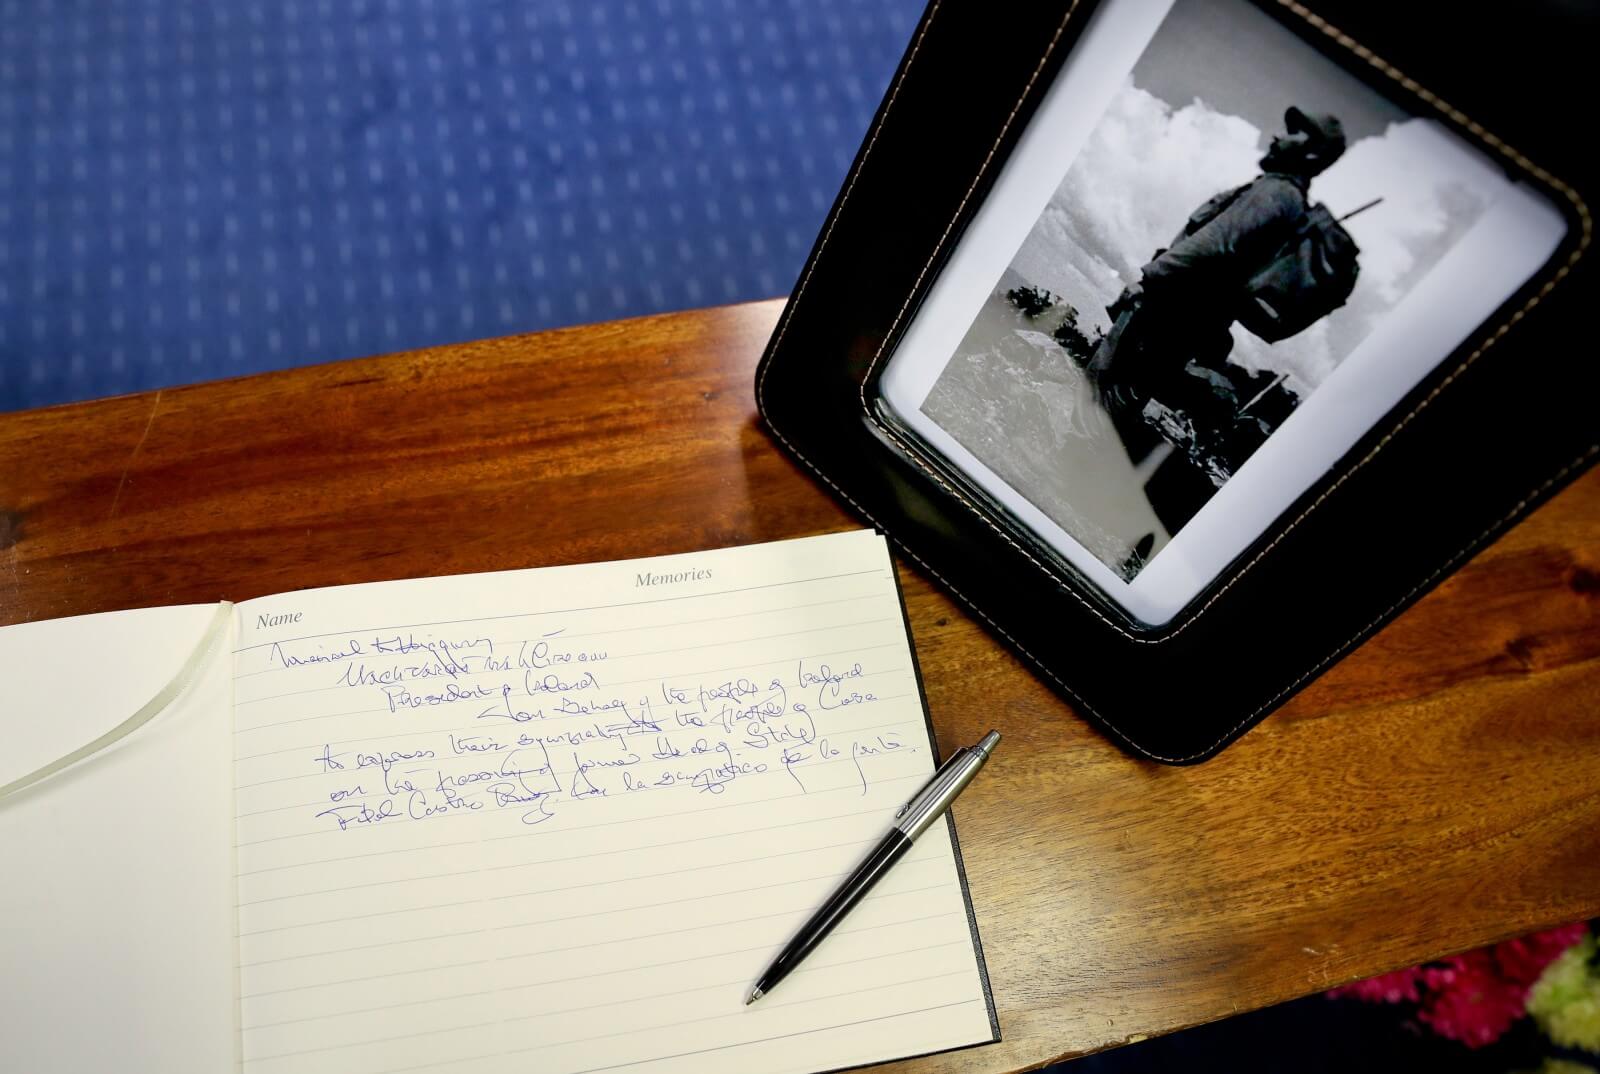 Name Memories
Micheál
Uachtarán na hÉireann
President of Ireland
On behalf of the people of Ireland
to express their sympathy to the people of Cuba
on the passing of former Head of State
Fidel Castro Ruz. la de la